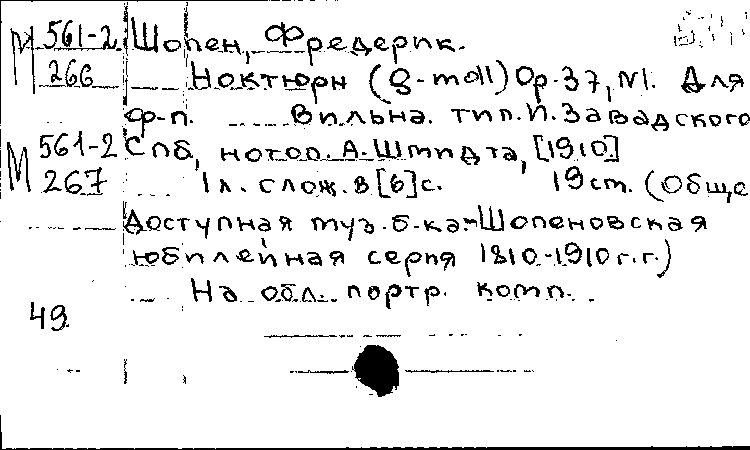 М 561-2 Шопен, Фредерик.
266 Ноктюрн (g-moll) Op. 37, N1. Для
ф-п. Вильна. тип. И. Завадского
М 561-2 Спб, нотоп. А. Шмидта, [1910]
267 1 л. слож. в [6] с. 19 cm. (Обще
доступная муз. б-ка. Шопеновская
юбилейная серия 1810-1910 г.г.)
На обл. портр. комп.
49